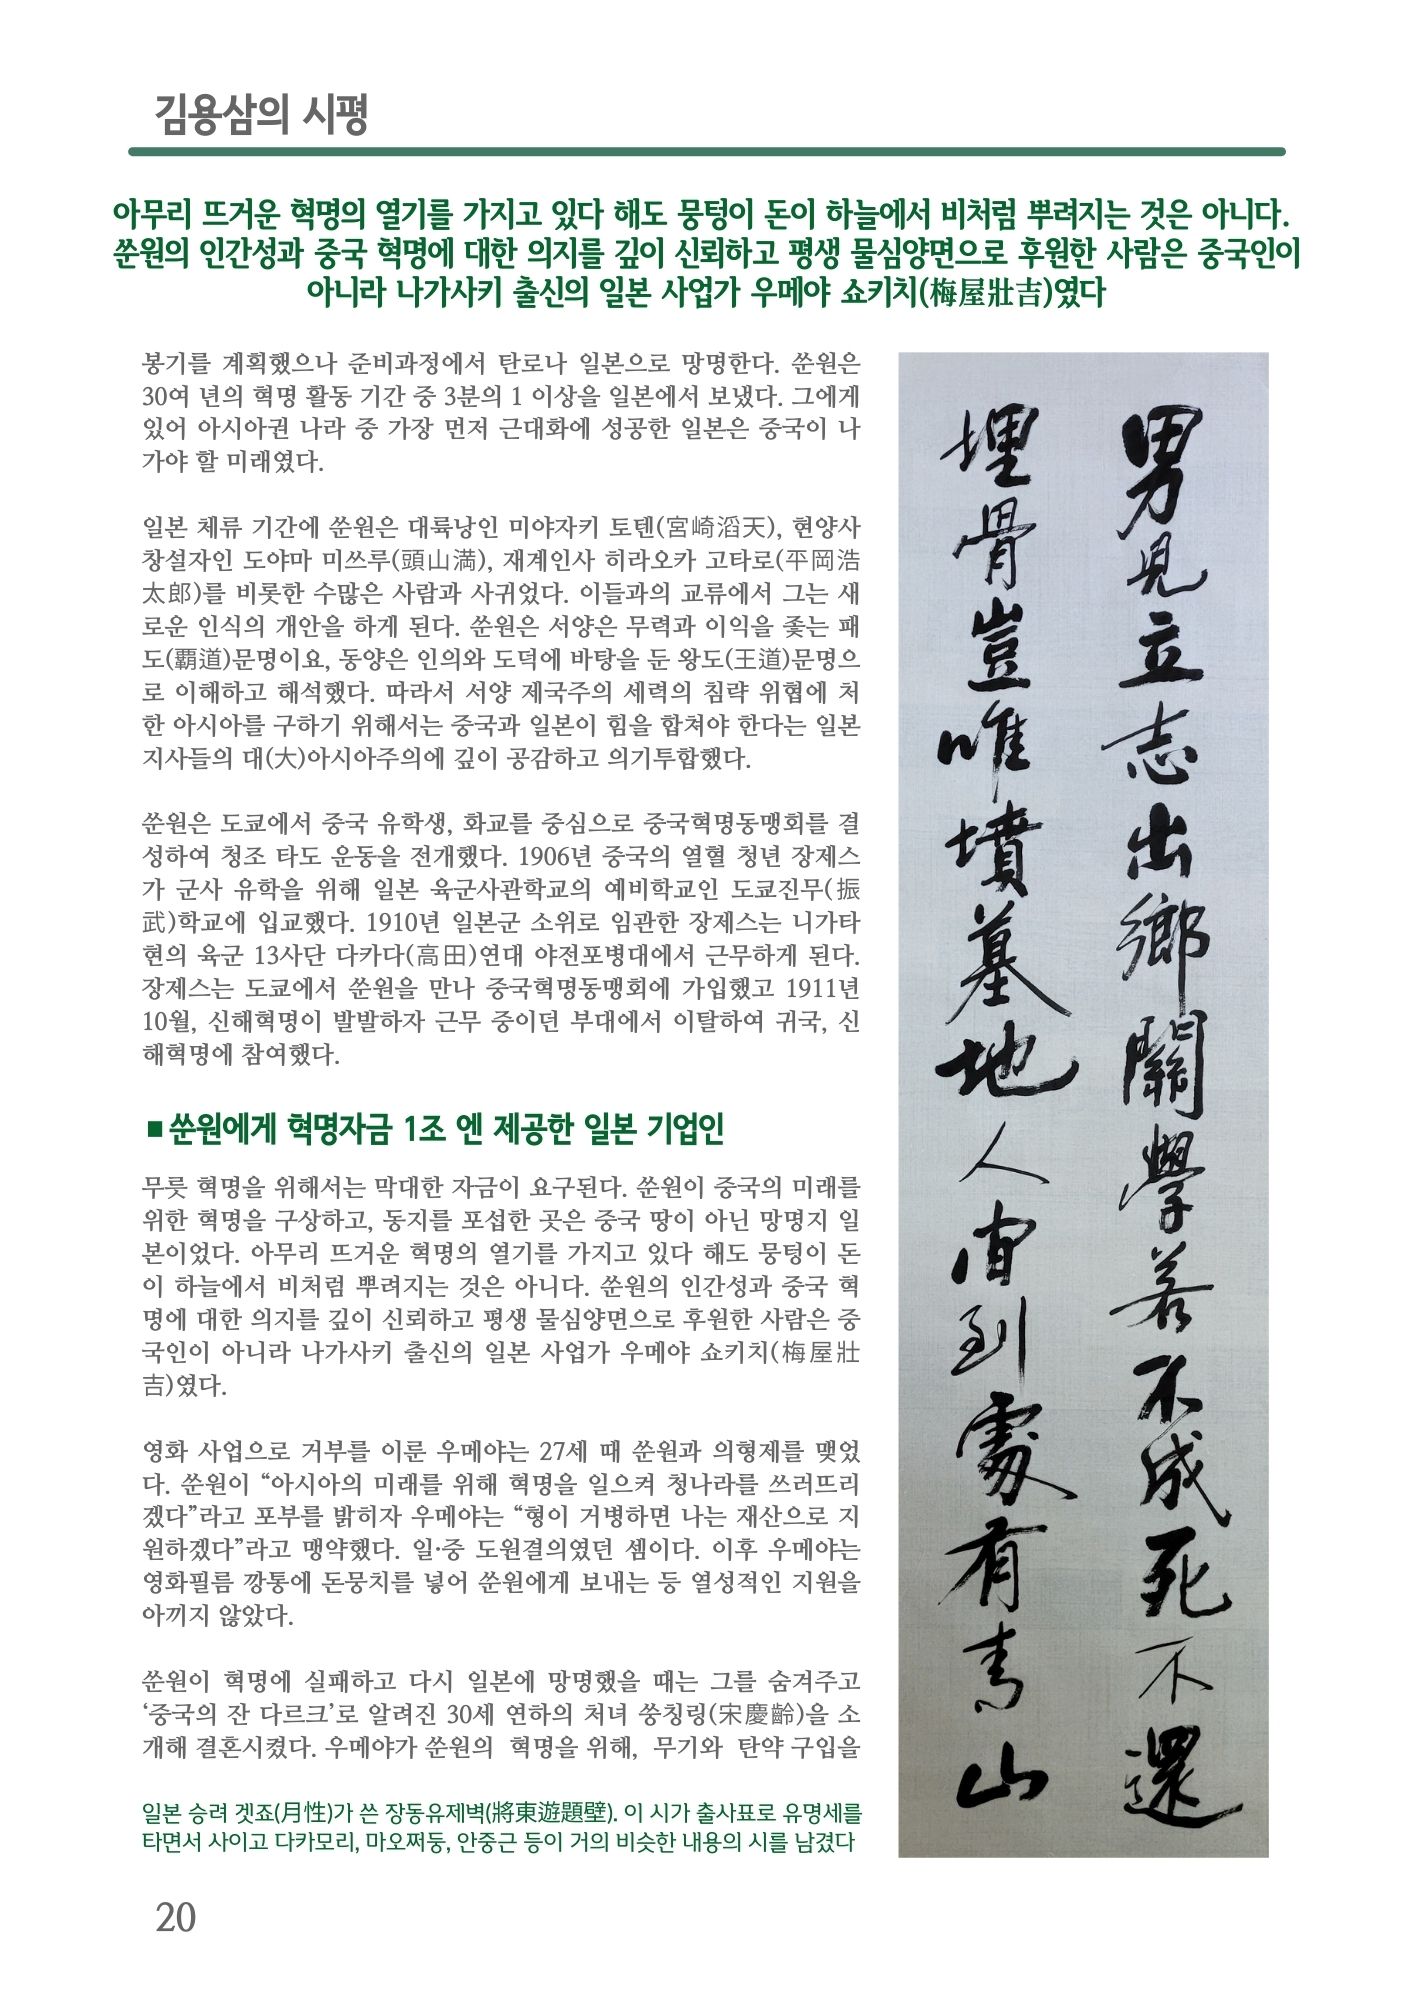 김용삼의 시평
아무리 뜨거운 혁명의 열기를 가지고 있다 해도 뭉텅이 돈이 하늘에서 비처럼 뿌려지는 것은 아니다.
쑨원의 인간성과 중국 혁명에 대한 의지를 깊이 신뢰하고 평생 물심양면으로 후원한 사람은 중국인이
아니라 나가사키 출신의 일본 사업가 우메야 쇼키치(梅屋壯吉)였다
봉기를 계획했으나 준비과정에서 탄로나 일본으로 망명한다. 쑨원은
30여 년의 혁명 활동 기간 중 3분의 1 이상을 일본에서 보냈다. 그에게
있어 아시아권 나라 중 가장 먼저 근대화에 성공한 일본은 중국이 나
가야 할 미래였다.
일본 체류 기간에 쑨원은 대륙낭인 미야자키 토텐(宮崎滔天), 현양사
창설자인 도야마 미쓰루(頭山満), 재계인사 히라오카 고타로(平岡浩
太郎)를 비롯한 수많은 사람과 사귀었다. 이들과의 교류에서 그는 새
로운 인식의 개안을 하게 된다. 쑨원은 서양은 무력과 이익을 좇는 패
도(覇道)문명이요, 동양은 인의와 도덕에 바탕을 둔 왕도(王道)문명으
로 이해하고 해석했다. 따라서 서양 제국주의 세력의 침략 위협에 처
한 아시아를 구하기 위해서는 중국과 일본이 힘을 합쳐야 한다는 일본
지사들의 대(大)아시아주의에 깊이 공감하고 의기투합했다.
쑨원은 도쿄에서 중국 유학생, 화교를 중심으로 중국혁명동맹회를 결
성하여 청조 타도 운동을 전개했다. 1906년 중국의 열혈 청년 장제스
가 군사 유학을 위해 일본 육군사관학교의 예비학교인 도쿄진무(振
武)학교에 입교했다. 1910년 일본군 소위로 임관한 장제스는 니가타
현의 육군 13사단 다카다(高田)연대 야전포병대에서 근무하게 된다.
장제스는 도쿄에서 쑨원을 만나 중국혁명동맹회에 가입했고 1911년
10월, 신해혁명이 발발하자 근무 중이던 부대에서 이탈하여 귀국, 신
해혁명에 참여했다.
■ 쑨원에게 혁명자금 1조 엔 제공한 일본 기업인
무릇 혁명을 위해서는 막대한 자금이 요구된다. 쑨원이 중국의 미래를
위한 혁명을 구상하고, 동지를 포섭한 곳은 중국 땅이 아닌 망명지 일
본이었다. 아무리 뜨거운 혁명의 열기를 가지고 있다 해도 뭉텅이 돈
이 하늘에서 비처럼 뿌려지는 것은 아니다. 쑨원의 인간성과 중국 혁
명에 대한 의지를 깊이 신뢰하고 평생 물심양면으로 후원한 사람은 중
국인이 아니라 나가사키 출신의 일본 사업가 우메야 쇼키치(梅屋壯
吉)였다.
영화 사업으로 거부를 이룬 우메야는 27세 때 쑨원과 의형제를 맺었
다. 쑨원이 “아시아의 미래를 위해 혁명을 일으켜 청나라를 쓰러뜨리
겠다”라고 포부를 밝히자 우메야는 “형이 거병하면 나는 재산으로 지
원하겠다”라고 맹약했다. 일·중 도원결의였던 셈이다. 이후 우메야는
영화필름 깡통에 돈뭉치를 넣어 쑨원에게 보내는 등 열성적인 지원을
아끼지 않았다.
쑨원이 혁명에 실패하고 다시 일본에 망명했을 때는 그를 숨겨주고
‘중국의 잔 다르크’로 알려진 30세 연하의 처녀 쑹칭링(宋慶齡)을 소
개해 결혼시켰다. 우메야가 쑨원의 혁명을 위해, 무기와 탄약 구입을
일본 승려 겟죠(月性)가 쓴 장동유제벽(將東遊題壁). 이 시가 출사표로 유명세를
타면서 사이고 다카모리, 마오쩌둥, 안중근 등이 거의 비슷한 내용의 시를 남겼다
男児立志出鄕關學若不成死不還
埋骨豈唯墳墓地人间到處有靑山
20